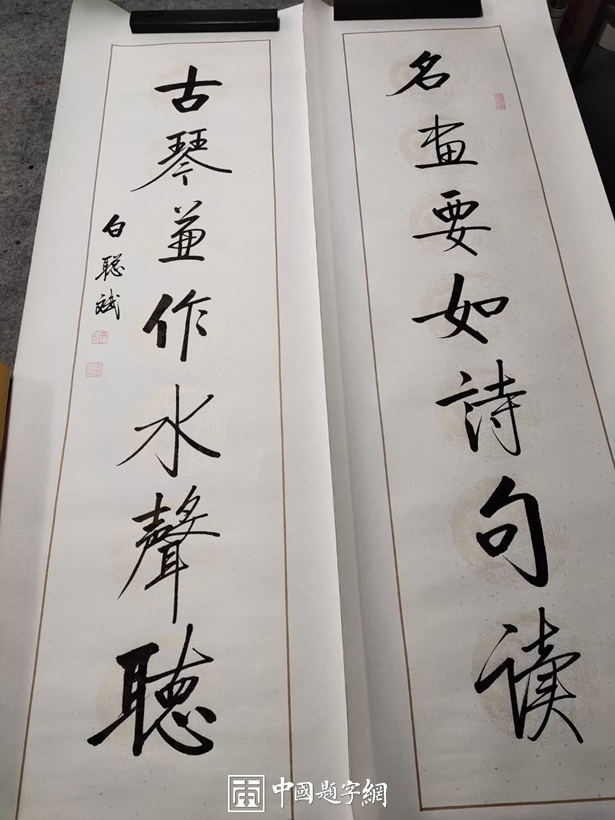 名画要如詩句读
古琴兼作水聲聽
白聪斌
中國題字網